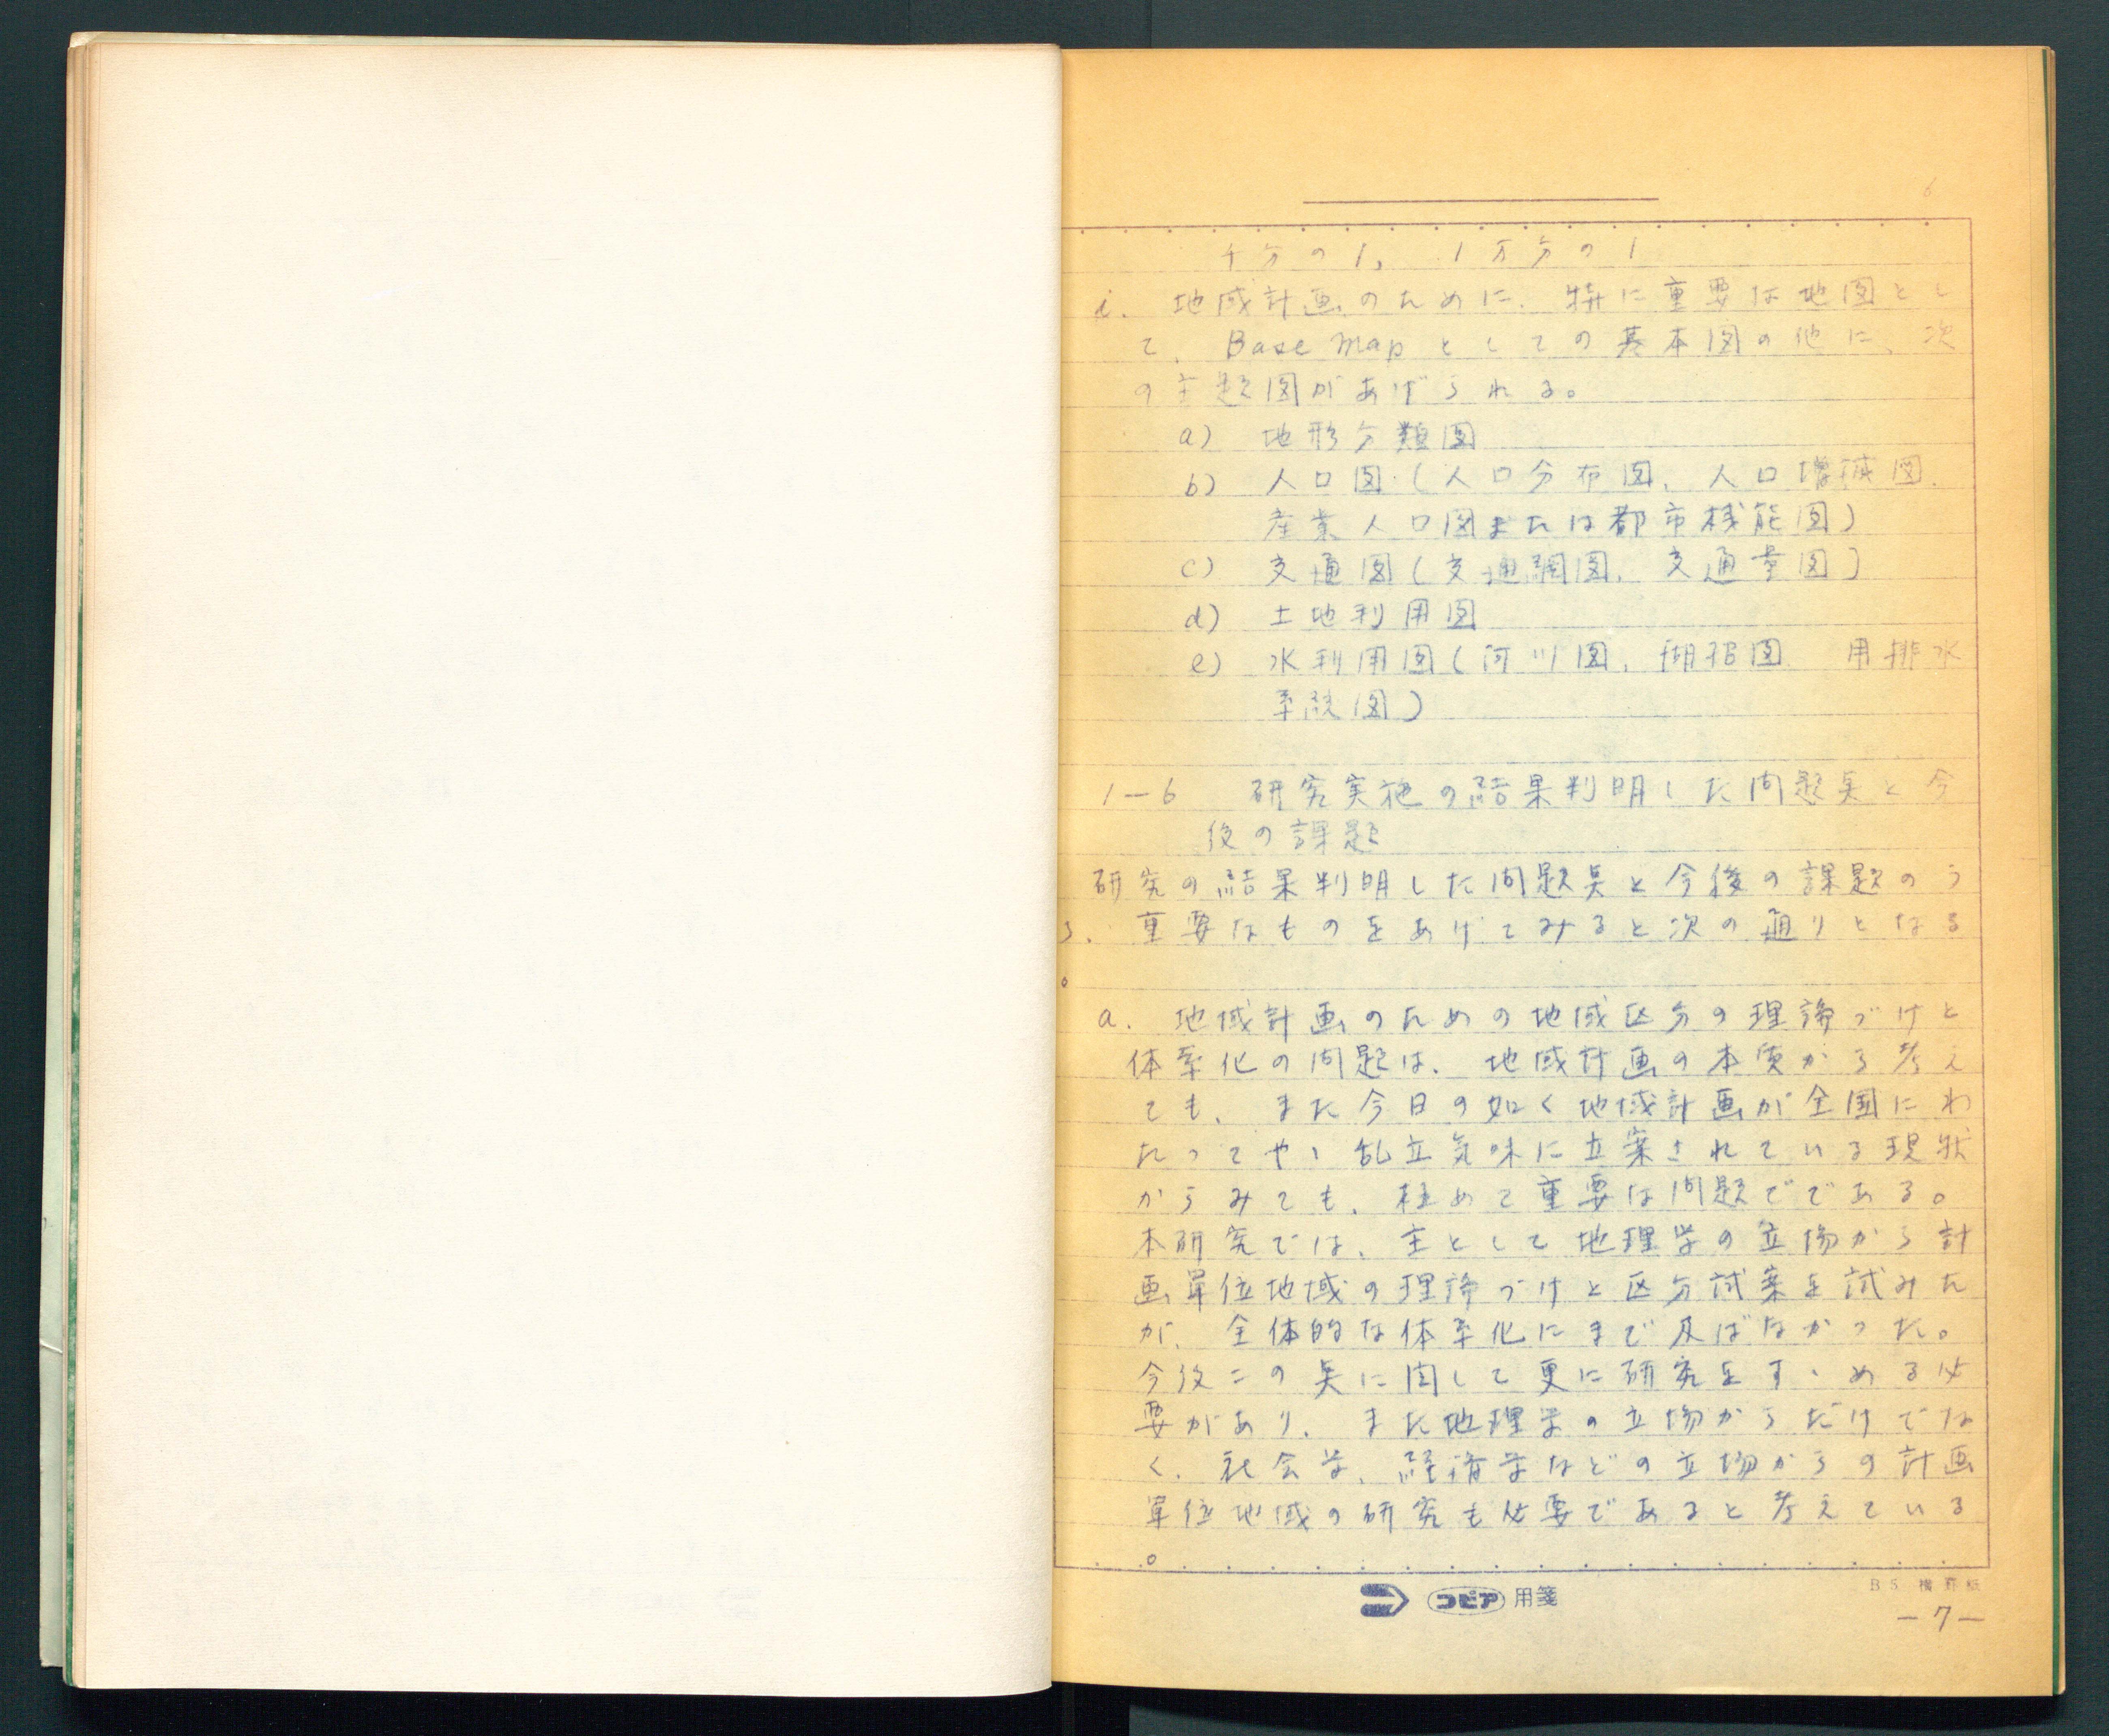 6
千分の1、1万分の1
i. 地域計画のために、特に重要な地図とし
て、Base Mapとしての基本図の他に、次
の主題図があげられる。
a) 地形分類図
b) 人口図(人口分布図、人口増減図、
産業人口図または都市機能図)
c) 交通図(交通網図、交通量図)
d) 土地利用図
e) 水利用図(河川図、湖沼図 用排水
系統図)
1-6 研究実施の結果判明した問題点と今
後の課題
研究の結果判明した問題点と今後の課題のう
ち、重要なものをあげてみると次の通りとなる
。
a. 地域計画のための地域区分の理論づけと
体系化の問題は、地域計画の本質から考え
ても、また今日の如く地域計画が全国にわ
たってやゝ乱立気味に立案されている現状
からみても、極めて重要な問題でである。
本研究では、主として地理学の立場から計
画単位地域の理論づけと区分試案を試みた
が、全体的な体系化にまで及ばなかった。
今後この点に関して更に研究をすゝめる必
要があり、また地理学の立場からだけでな
く、社会学、経済学などの立場からの計画
単位地域の研究も必要であると考えている
。
コピア用箋
B5 横罫紙
-7-